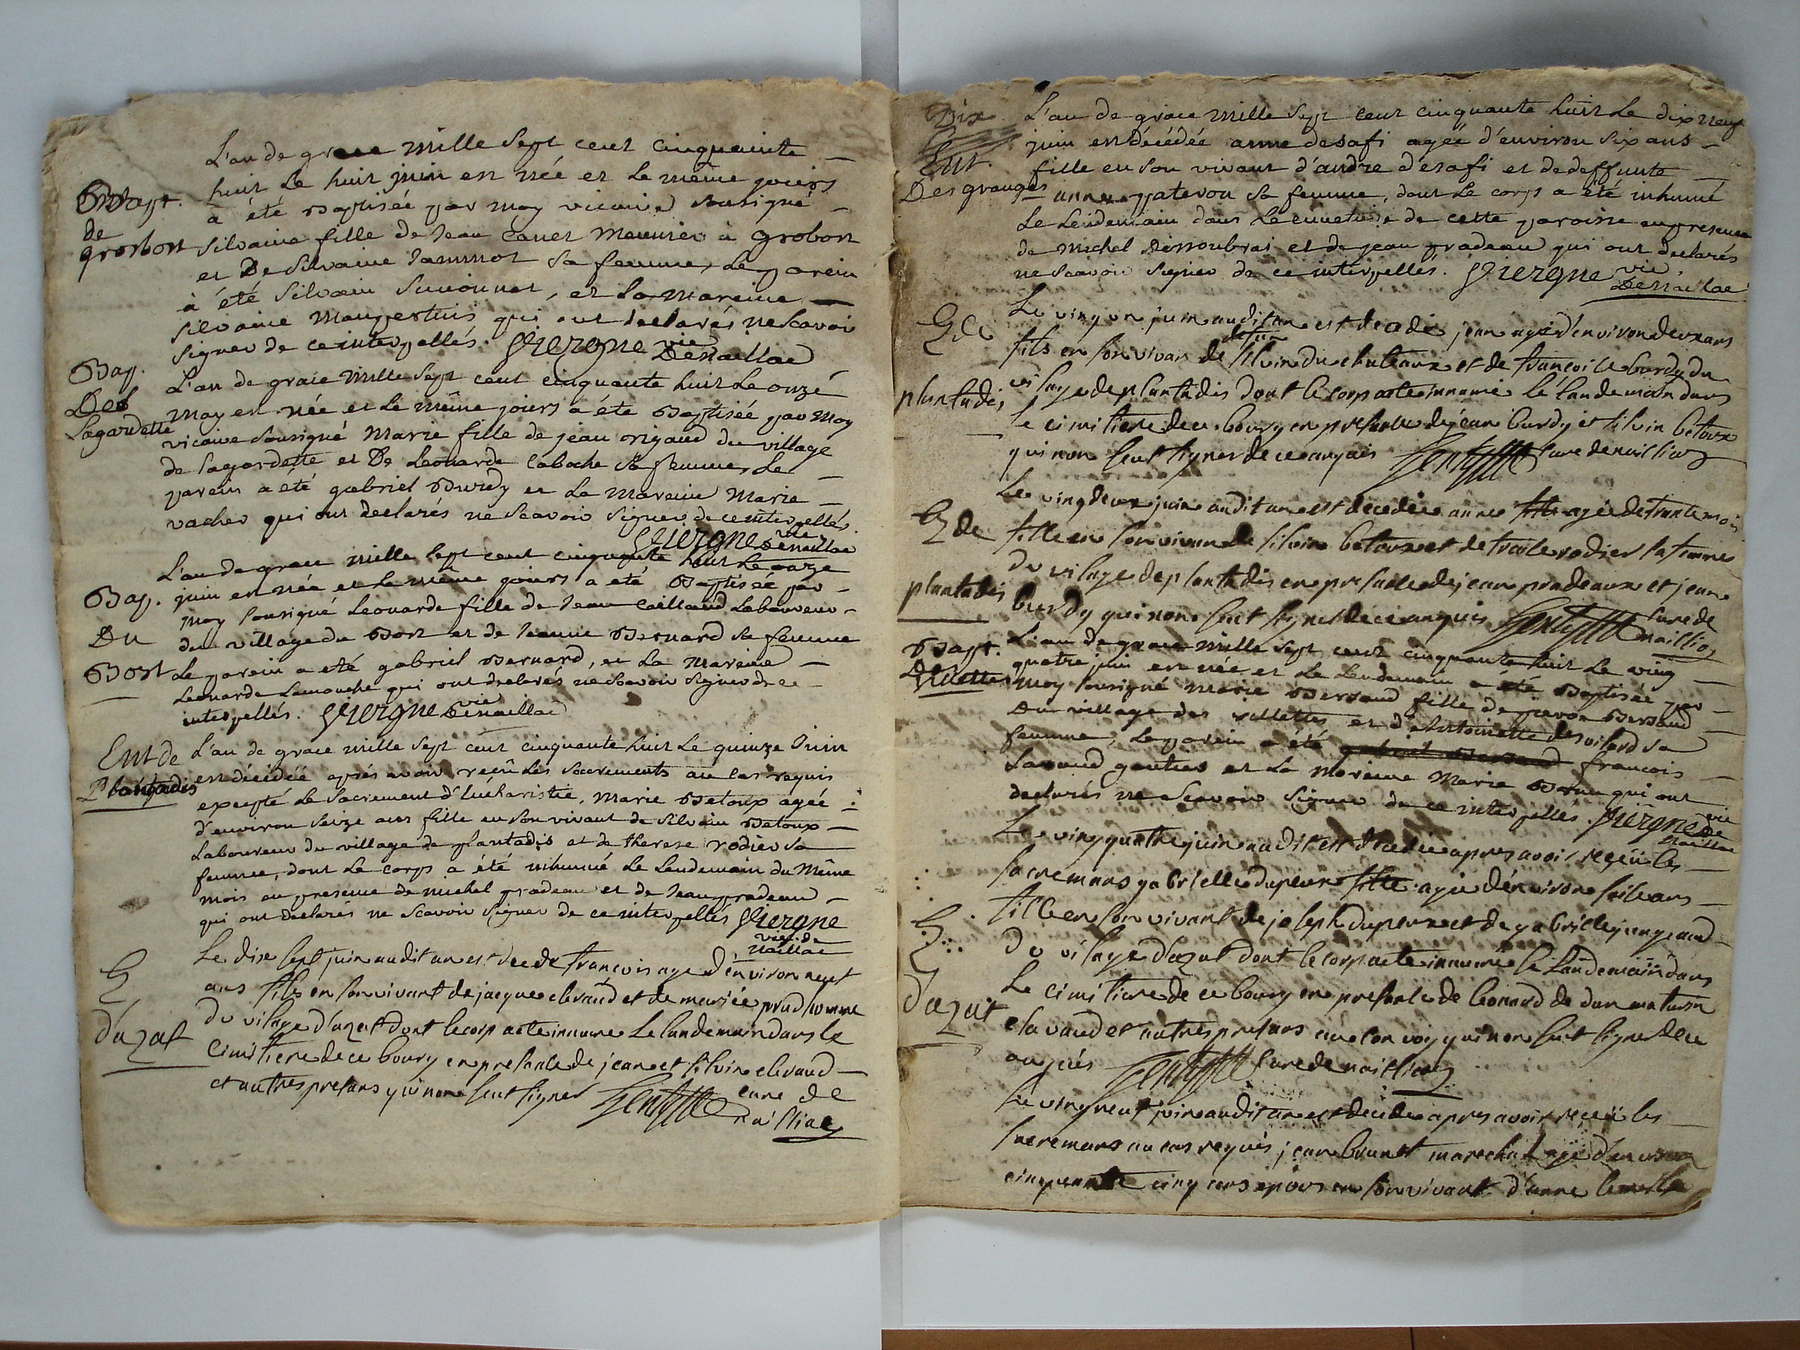 Bapt.
de
grosbost
L'an de grace mille sept cent cinquainte
huit le huit juin est née et le même jours
a été Baptisée par moy vicaire sousigné
silvaine fille de Jean Canet Meunier à Grobost
et De silvaine Jammot sa femme, Le parein
à été silvain simonnet, et la mareine
silvaine Maugestuis qui ont declarés ne scavoir
signer de ce interpellés. Viergne vic. De naillac
Bap.
De
Lagardette
L'an de graie mille sept cent cinquante huit Le onze
may est née et le même jours à été Baptisée par moy
vicaire sousigné Marie fille de jean rigaud du village
de lagardette et De Leonarde Caboche sa femme, Le
parein a été gabriel Burdy et la Mareine Marie
vacher qui ont declarés ne scavoir signer de ce interpellés.
Viergne vic. De naillac
Bap.
Du
Bost
L'an de grace mille sept cent cinquante huit Le onze
juin est née et le même jours a été Baptisée par
moy sousigné Leonarde fille de Jean Caillaud Laboureur
du village du Bost et de Jeanne Bernard sa femme
Le parein a été gabriel Bernard, et La Mareine
Leonarde Lamouche qui ont declarés ne scavoir signer de ce
interpellés. Viergne vic. De naillac
Ent de
Plantadis
L'an de grace mille sept cent cinquante huit Le quinze Juin
est décédée aprés avoir reçu Les sacrements au cas requis
excepté Le sacrement d'Eucharistie, Marie Betoux agée
d'environ seize ans fille en son vivant de silvain Betoux
Laboureur du village de plantadis et de therese rodier sa
femme, dont Le corps a été inhumé Le Lendemain du Même
mois en presence de michel pradeau et de Jean pradeau
qui ont declarés ne scavoir signer de ce interpellés Viergne
vic. de
Naillac
E
d'azat
Le dixe sept juin audit an est decede françois age d'environ neuf
ans fils en son vivant de jacque clavaud et de marie prud'homme
du vilage d'azat dont le corp a ete innume Le landemain dans le
cimitiere de ce bourg en presance de jean et silvin clavaud
et autres presans qui n'on seut signer Gentilst cure de
naillac
Ent.
Des granges
L'an de grace mille sept cent cinquante huit Le dix neuf
juin est décédée anne desafi agée d'environ six ans
fille en son vivant d'andre desafi et de deffunte
anne paterou sa femme, dont Le corps a été inhumé
Le Lendemain dans Le cimetiere de cette paroisse en presence
de michel Desroubras et de jean pradeau qui ont declarés
ne scavoir signer de ce interpellés. Viergne vic.
De naillac
E de
plantadis
Le vingt un juin audit an est decedé jean agé d'environ deux ans
fils en son vivan de deffun silvin du chateaux et de françoise burdy du
vilage de plantadis dont le corp a ete innumé le landemain dans
le cimitiere de ce bourg en presance de jean burdy et silvin betoux
qui n'on seut signer de ce anquis Gentilst cure de naillac
E de
plantadis
Le vingt deux juin audit an est decedée anne agée de trante mois
fille en son vivan de silvin betoux et de traise rodier sa famme
du vilage de plantadis en presance de jean pradeaux et jean
burdy qui n'on seut signer de ce anquis Gentilst cure de
naillac
Bapt.
Villette
L'an de grace mille sept cent cinquante huit Le ving
quatre juin est née et Le Lendemain a été Baptisée par
moy sousigné Marie Bersaud fille de pierre Bersaud
Du village des villettes et d'Antoinette desvilard sa
femme, Le parein a été francois
Lavaud gautier et La Mareine Marie Brun qui ont
declarés ne scavoir signer de ce interpellés. Viergne vic
de
Naillac
E
d'azat
Le vingt quatre juin audit an est decedée apres avoir reçeü les
sacremans gabrielle dupeux fille agée d'environ seise ans
fille en son vivant de joseph dupeux et de gabrielle jangeaud
du vilage d'azat dont le corp a ete innume le landemain dans
le cimitiere de ce bourg en presance de leonard de dun maturin
clavaud et autres presans qui n'on seut signer de ce
anquis Gentilst cure de naillac
Le vingt neuf juin audit an est decédé apres avoir reçeü les
sacremans au cas requis jean brunet marechal agé d'environ
cinquante cinq ans epoux en son vivant d'anne